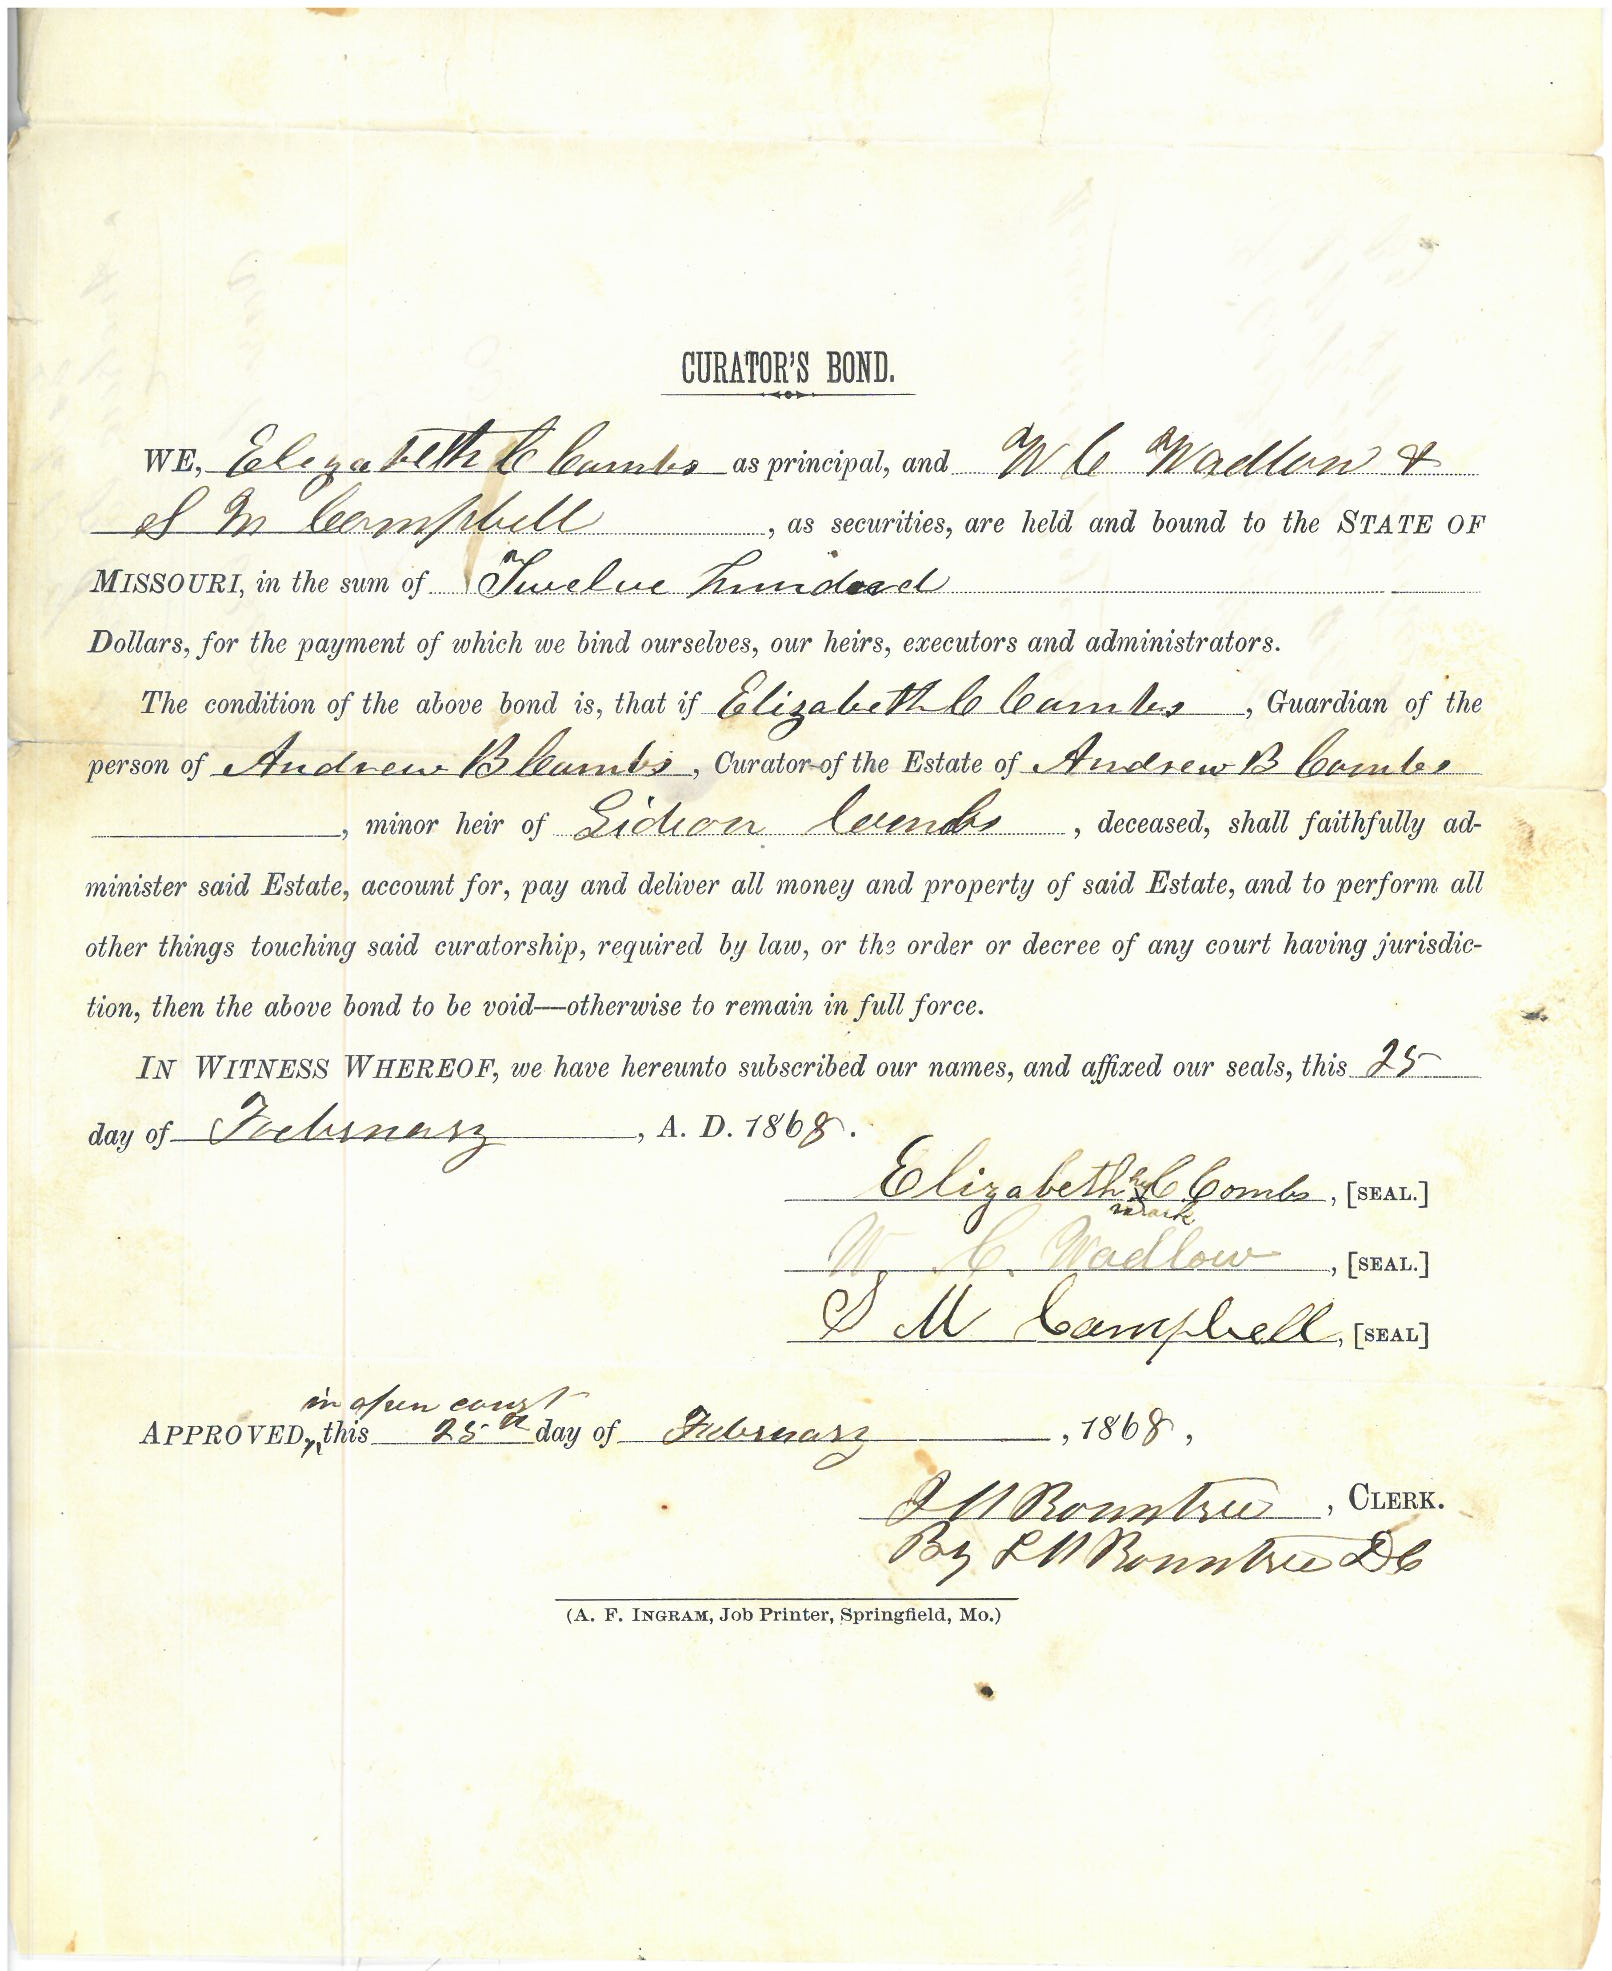 CURATOR'S BOND.
WE, Elizabeth C Combs as principal, and W C Wadlow &
S M Campbell, as securities, are held and bound to the STATE OF
MISSOURI, in the sum of Twelve hundred
Dollars, for the payment of which we bind ourselves, our heirs, executors and administrators.
The condition of the above bond is, that if Elizabeth C Combs, Guardian of the
person of Andrew B Combs, Curator of the Estate of Andrew B Combs
, minor heir of Gideon Combs, deceased, shall faithfully ad-
minister said Estate, account for, pay and deliver all money and property of said Estate, and to perform all
other things touching said curatorship, required by law, or the order or decree of any court having jurisdic-
tion, then the above bond to be void—otherwise to remain in full force.
IN WITNESS WHEREOF, we have hereunto subscribed our names, and affixed our seals, this 25
day of February, A. D. 1868.
her
Elizabeth X C Combs, [SEAL.]
mark
W. C. Wadlow, [SEAL.]
S M Campbell, [SEAL]
in open court
APPROVED, this 25th day of February, 1868,
J H Rountree, CLERK.
By L H Rountree D C
(A. F. INGRAM, Job Printer, Springfield, Mo.)